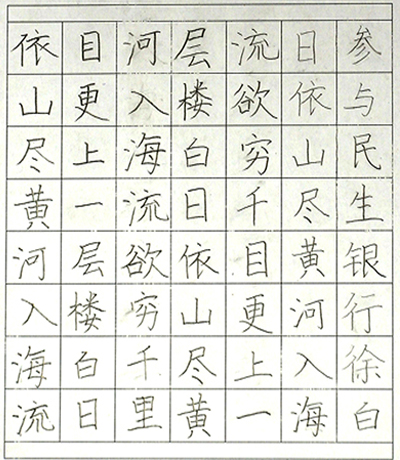 参与民生银行徐白
日依山尽黄河入海
流欲穷千目更上一
层楼白日依山尽黄
河入海流欲穷千里
目更上一层楼白日
依山尽黄河入海流